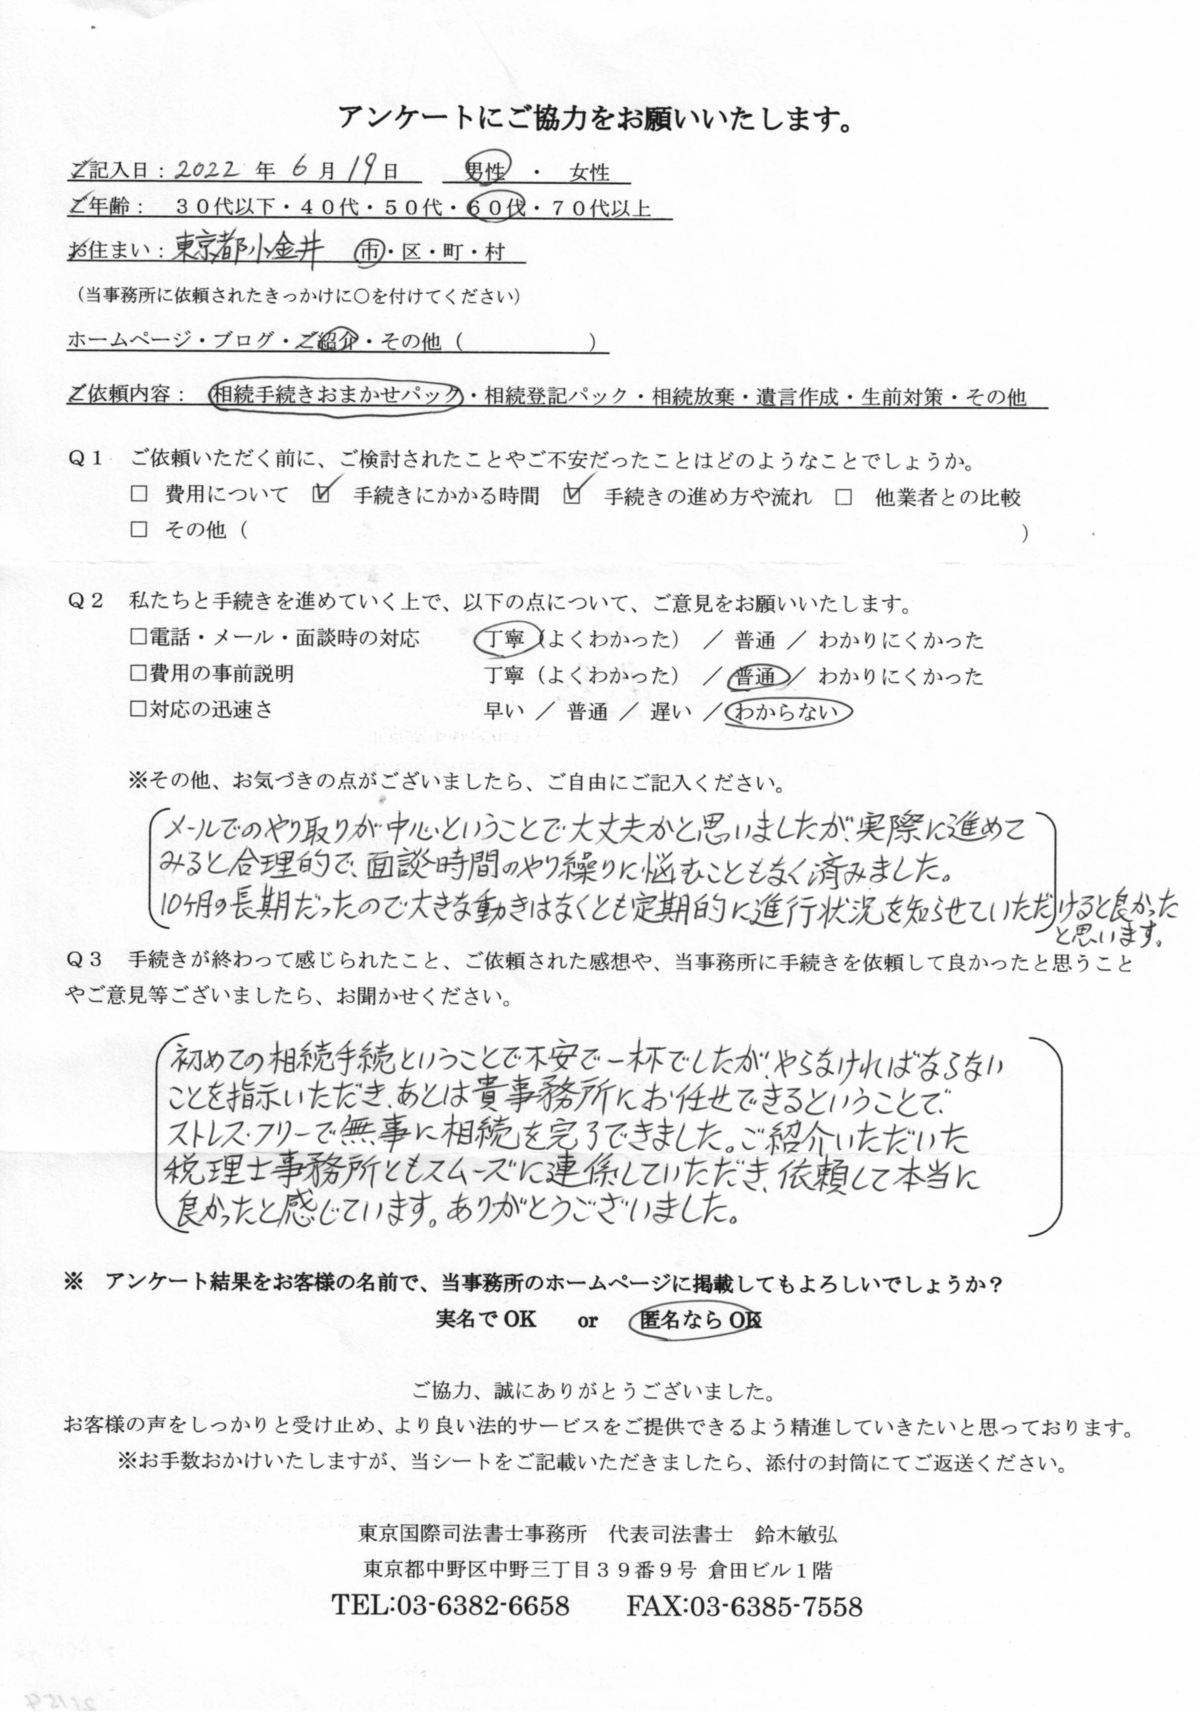 アンケートにご協力をお願いいたします。
ご記入日：2022 年 6 月 19 日　男性 ・ 女性
ご年齢：　３０代以下・４０代・５０代・６０代・７０代以上
お住まい：東京都小金井 市・区・町・村
（当事務所に依頼されたきっかけに○を付けてください）
ホームページ・ブログ・ご紹介・その他（　　　　　　）
ご依頼内容：　相続手続きおまかせパック・相続登記パック・相続放棄・遺言作成・生前対策・その他
Ｑ１　ご依頼いただく前に、ご検討されたことやご不安だったことはどのようなことでしょうか。
□ 費用について　☑ 手続きにかかる時間　☑ 手続きの進め方や流れ　□ 他業者との比較
□ その他（　　　　　　）
Ｑ２　私たちと手続きを進めていく上で、以下の点について、ご意見をお願いいたします。
□電話・メール・面談時の対応　丁寧（よくわかった） ／ 普通 ／ わかりにくかった
□費用の事前説明　丁寧（よくわかった） ／ 普通 ／ わかりにくかった
□対応の迅速さ　早い ／ 普通 ／ 遅い ／ わからない
※その他、お気づきの点がございましたら、ご自由にご記入ください。
メールでのやり取りが中心ということで大丈夫かと思いましたが、実際に進めて
みると合理的で、面談時間のやり繰りに悩むこともなく済みました。
10ヶ月の長期だったので大きな動きはなくとも定期的に進行状況を知らせていただけると良かった
と思います。
Ｑ３　手続きが終わって感じられたこと、ご依頼された感想や、当事務所に手続きを依頼して良かったと思うこと
やご意見等ございましたら、お聞かせください。
初めての相続手続ということで不安で一杯でしたが、やらなければならない
ことを指示いただき、あとは貴事務所にお任せできるということで、
ストレス・フリーで無事に相続を完了できました。ご紹介いただいた
税理士事務所ともスムーズに連係していただき、依頼して本当に
良かったと感じています。ありがとうございました。
※　アンケート結果をお客様の名前で、当事務所のホームページに掲載してもよろしいでしょうか？
実名で OK　or　匿名なら OK
ご協力、誠にありがとうございました。
お客様の声をしっかりと受け止め、より良い法的サービスをご提供できるよう精進していきたいと思っております。
※お手数おかけいたしますが、当シートをご記載いただきましたら、添付の封筒にてご返送ください。
東京国際司法書士事務所　代表司法書士　鈴木敏弘
東京都中野区中野三丁目３９番９号 倉田ビル１階
TEL:03-6382-6658　FAX:03-6385-7558